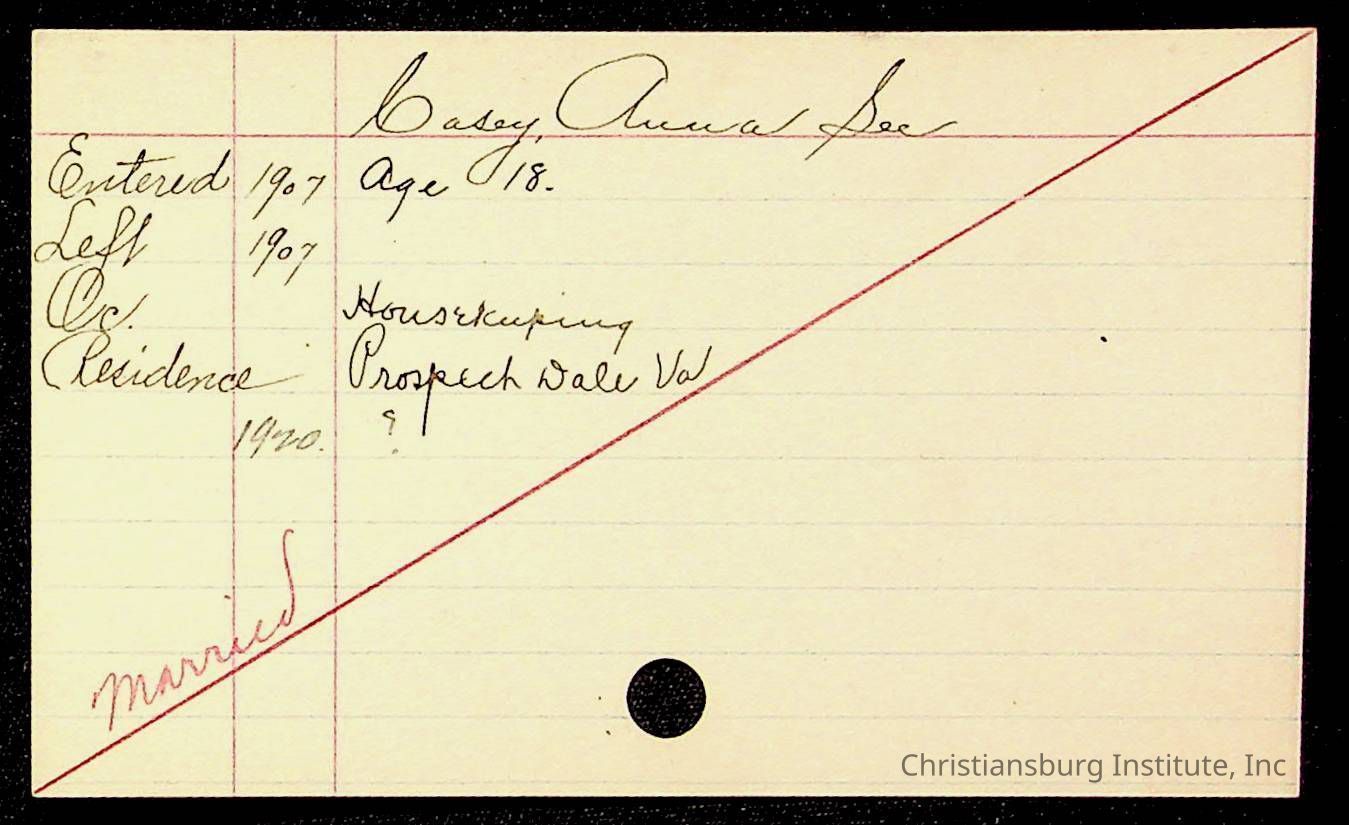 Casey, Anna See
Entered 1907 Age 18.
Left 1907
Oc. Housekeeping
Residence Prospect Dale Va
1920. ?
Married
Christiansburg Institute, Inc